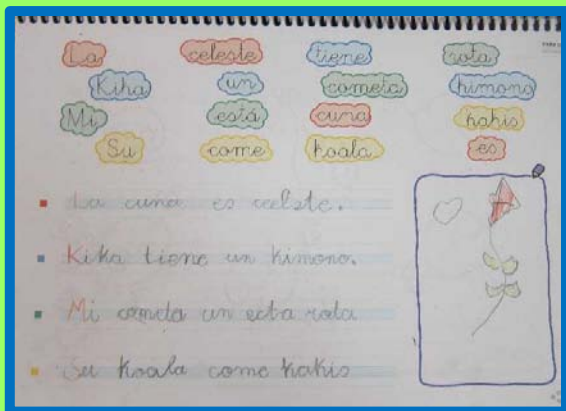 La celeste tiene rota
Kika un cometa kimono
Mi está cuna kakis
Su come koala es
La cuna es celste.
Kika tiene un kimono.
Mi cometa un ecta rota
Su koala come kakis